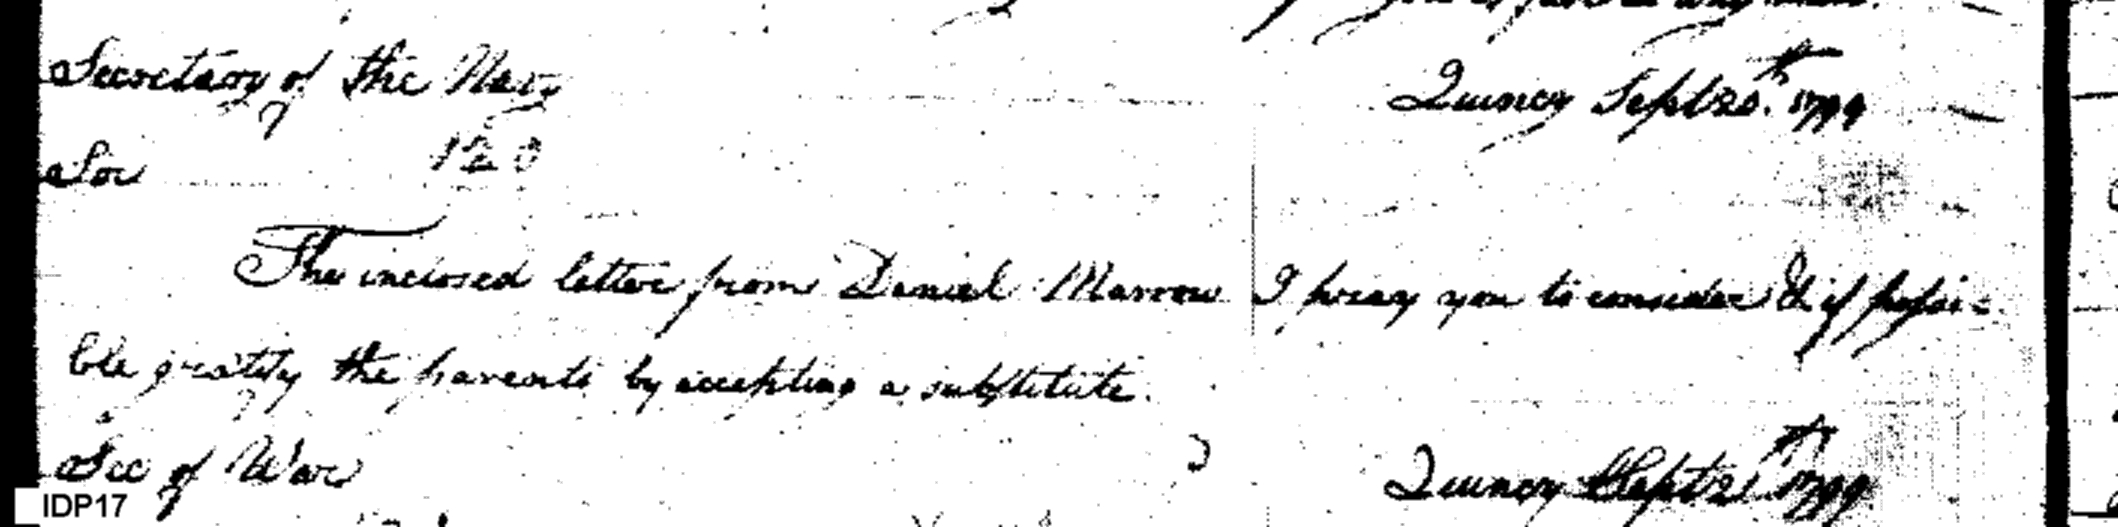 Secretary of the Navy Quincy Sept 20.th 1799
Sir 120
The inclosed letter from Daniel Marrow I pray you to consider & if possi=
ble gratify the parents by accepting a substitute.
Sec of War Quincy Sept 21.th 1799
IDP17